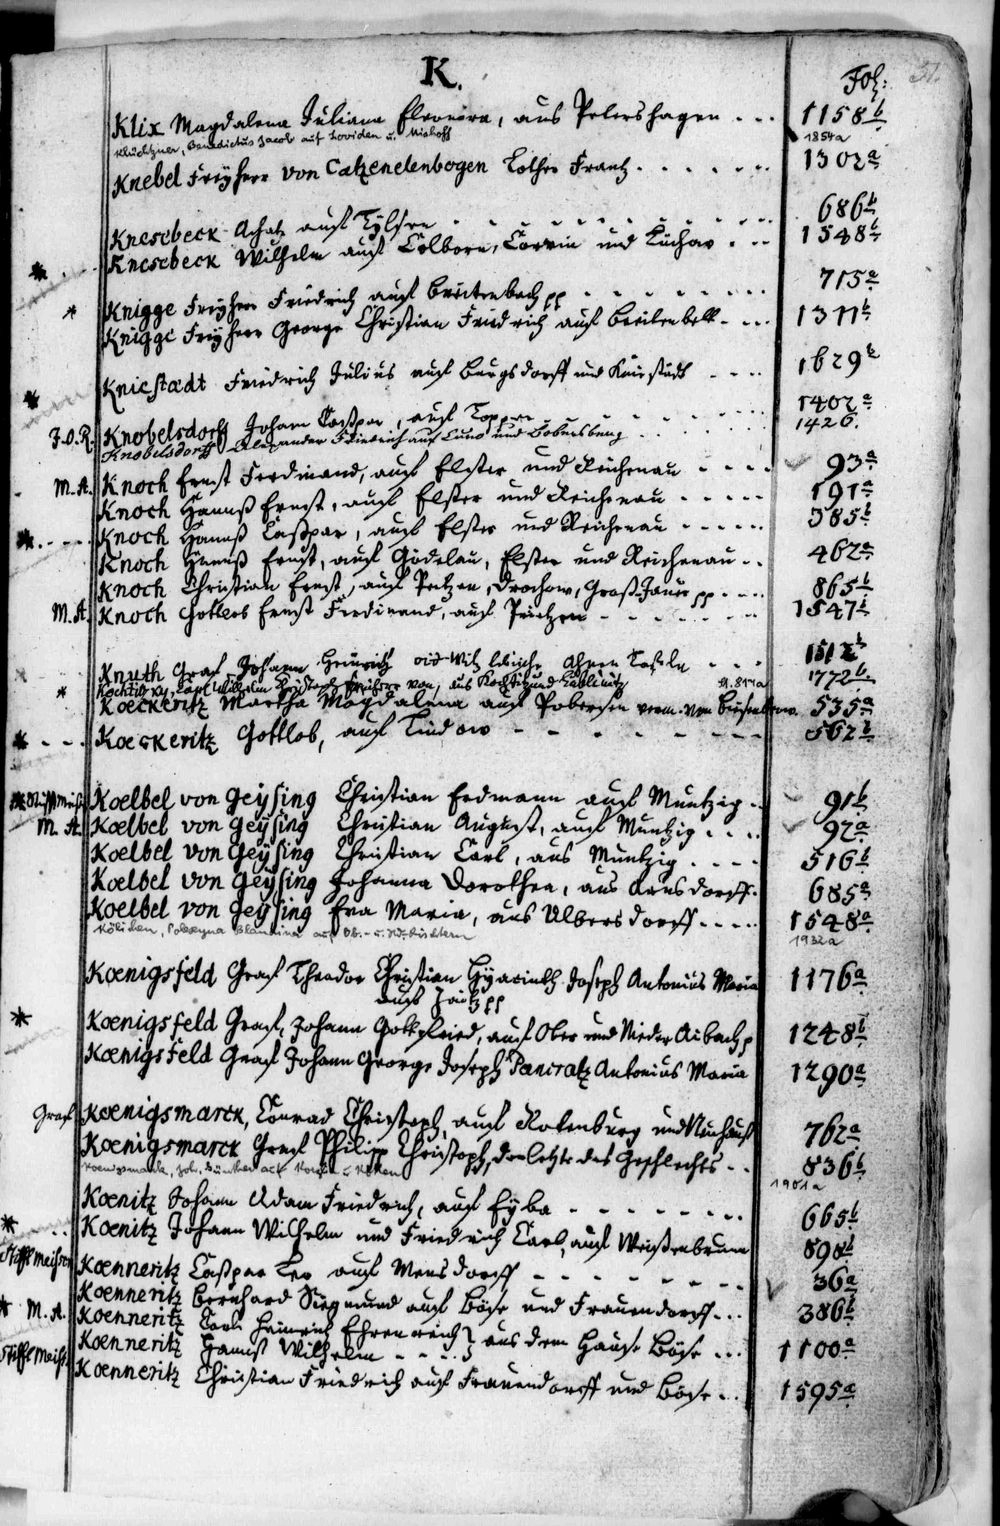 K.
Fol: 51.
Klix Magdalena Juliana Eleonora, aus Petershagen - - - 1158b
Klüchtzner, Benedictus Jacob auf u. 1854a
Knebel Freyherr von Catzenelenbogen Lothar Frantz - - - - - - 1302a
Knesebeck Achatz auf Tylsen - - - - - - - - - 686b
* Knesebeck Wilhelm auf Colborn, Corvin und Lüchow - - - 1548b
Knigge Freyherr Friedrich auf Breitenbach pp - - - - - - - 715a
* Knigge Freyherr George Christian Friedrich auf - - - 1311b
Kniestædt Friedrich Julius auf Burgsdorff und Kniestædt - - - - 1629b
* Knobelsdorff Johann Caspar, auf Topper - - - - - - 1402a
J.O.R. Knobelsdorff Alexander Friedrich auf Cunow und Bobersberg - - - - - - 1426.
Knoch Ernst Ferdinand, auf Elster und Reichenau - - - - 93a
M.A. Knoch Hannß Ernst, auf Elster und Reichenau - - - - - 191a
Knoch Hannß Caspar, auf Elster und Reichenau - - - - - 385b
* - - - Knoch Hannß Ernst, auf Gödelau, Elster und Reichenau - - 462a
Knoch Christian Ernst, auf Pritzen, Drochow, Groß-Jauer pp - - - - 865b
M.A. Knoch Gottlob Ernst Ferdinand, auf Pritzen - - - - - - - 1547b
Knuth Graf, Johann Heinrich - - - 1512b
Kochtitzky, Carl Wilhelm Freiherr von, aus Kochtitz und 1772b
* Koeckeritz Martha Magdalena auf verm. von 535a
* - - - Koeckeritz Gottlob, auf Lindow - - - - - - - 562b
Stifft Meiß. Koelbel von Geysing Christian Erdmann auf Muntzig - - 91b
M.A. Koelbel von Geysing Christian August, auf Muntzig - - - - 92a
Koelbel von Geysing Christian Carl, aus Muntzig - - - - 516b
Koelbel von Geysing Johanna Dorothea, aus Arnsdorff - 685a
Koelbel von Geysing Eva Maria, aus Ulbersdorff - - - - 1548a
Kölichen, Blandina auf Ob.- u. 1932a
Kœnigsfeld Graf Theodor Christian Hyacinth Joseph Antonius Maria 1176a
auf Zaitz pp
* Kœnigsfeld Graf, Johann Gottfried, auf Ober und Nieder Aibach p 1248b
Kœnigsfeld Graf Johann George Joseph Pancratz Antonius Maria 1290a
Graf Kœnigsmarck, Conrad Christoph, auf Rotenburg und Neuhauß 762a
Kœnigsmarck Graf Philipp Christoph, der letzte des Geschlechts - - 836b
Koenigsmarck, Joh. Günther auf u. 1901a
Kœnitz Johann Adam Friedrich, auf Eyba - - - - - - - 665b
* Kœnitz Johann Wilhelm und Friedrich Carl, auf Weißenbrunn 898b
Stifft Meissen Kœnneritz Caspar Leo auf Mensdorff - - - - - - - 36a
Koenneritz Bernhard Siegmund auf Böse und Frauendorff - - - 386b
* M.A. Koenneritz Carl Heinrich Ehrenreich } aus dem Hause Böse - - - 1100a
Stifft Meiß. Koenneritz Hannß Wilhelm - - - }
Koenneritz Christian Friedrich auf Frauendorff und Böse - - 1595a